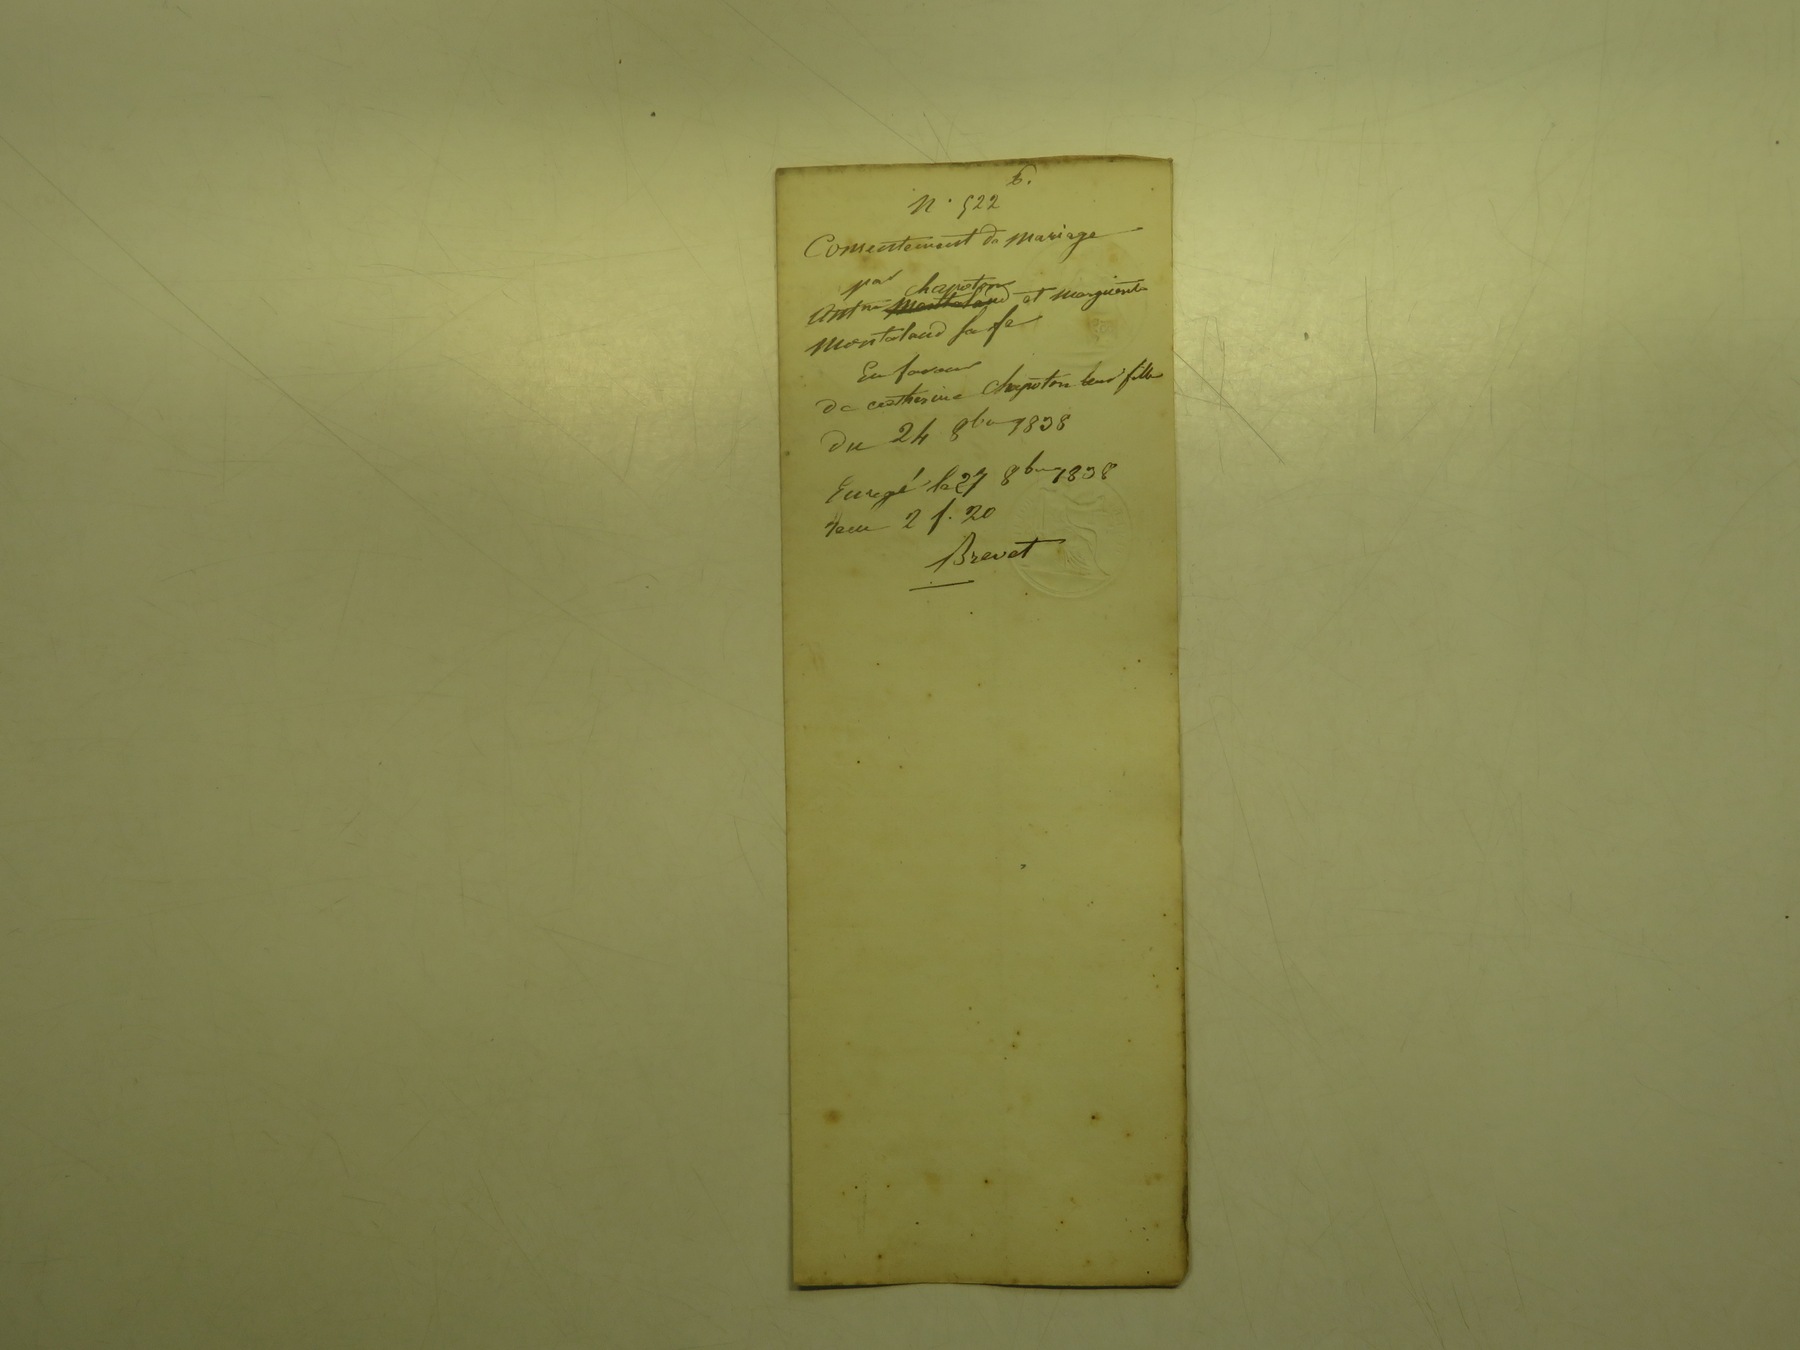 6.
N° 522
Consentement de mariage
par
Antne chapoton et marguerite
Montaland sa fe
En faveur
de catherine chapoton leur fille
du 24 8bre 1838
Enregé le 27 8bre 1838
recu 2 f. 20
Brevet